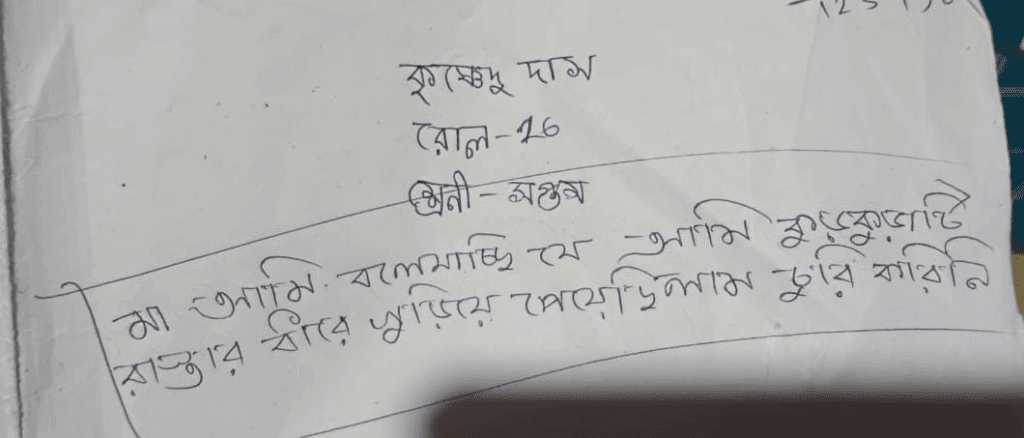 কৃষ্ণেন্দু দাস
রোল-26
শ্রেনী - সপ্তম
মা আমি. বলেযাচ্ছি যে আমি কুড়কুড়াটি
রাস্তার ধারে কুড়িয়ে পেয়েছিলাম চুরি করিনি